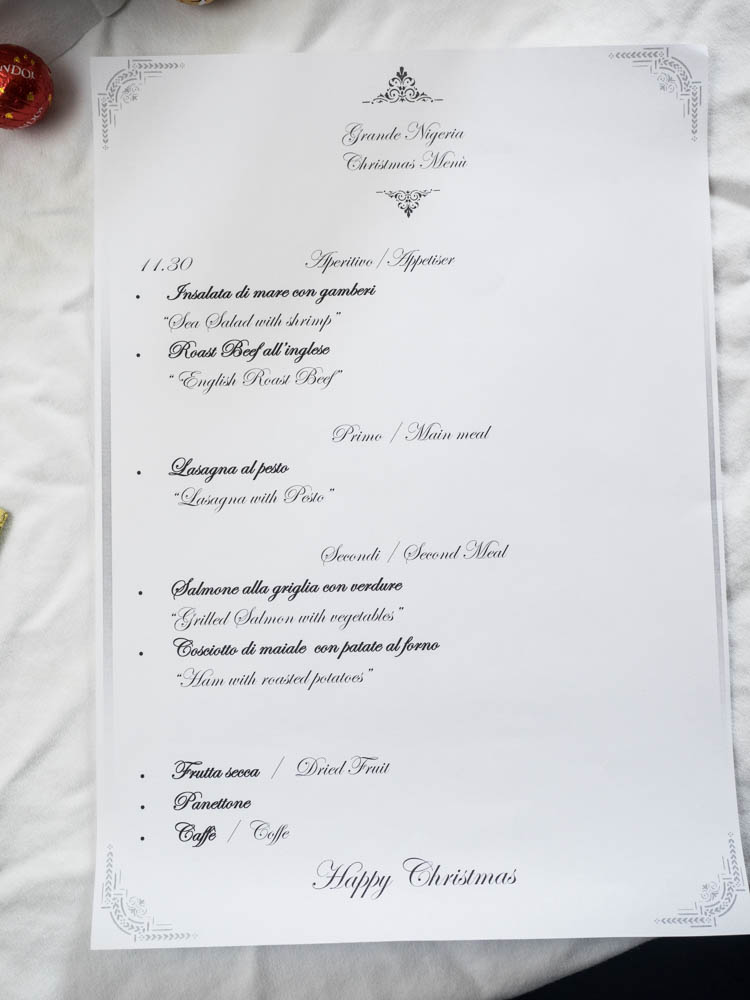 NDOR
Grande Nigeria
Christmas Menù
11.30 Aperitivo / Appetiser
• Insalata di mare con gamberi
"Sea Salad with shrimp"
• Roast Beef all'inglese
" English Roast Beef"
Primo / Main meal
• Lasagna al pesto
"Lasagna with Pesto"
Secondi / Second Meal
• Salmone alla griglia con verdure
"Grilled Salmon with vegetables"
• Cosciotto di maiale con patate al forno
"Ham with roasted potatoes"
• Frutta secca / Dried Fruit
• Panettone
• Caffè / Coffe
Happy Christmas